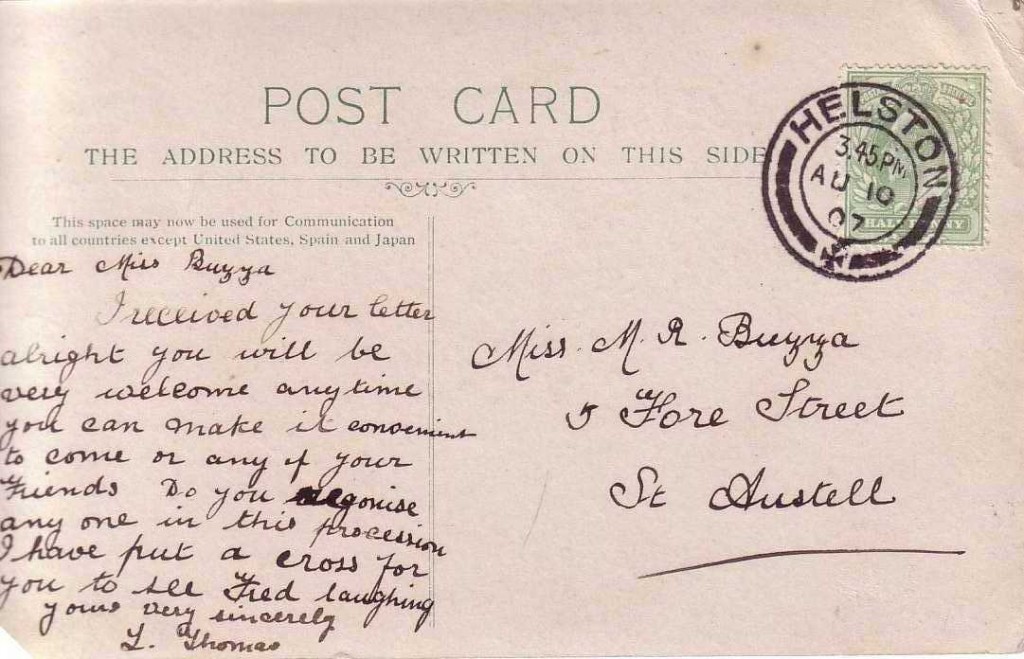 POST CARD
THE ADDRESS TO BE WRITTEN ON THIS SIDE
HELSTON
3.45PM
AU 10
07
HALF
NY
This space may now be used for Communication
to all countries except United States, Spain and Japan
Dear Miss Buzza
I received your letter
alright you will be
very welcome anytime
you can make it convenient
to come or any of your
Friends Do you
any one in this procession
I have put a cross for
you to see Fred laughing
yours very sincerely
L. Thomas
Miss. M. R. Buzza
5 Fore Street
St Austell